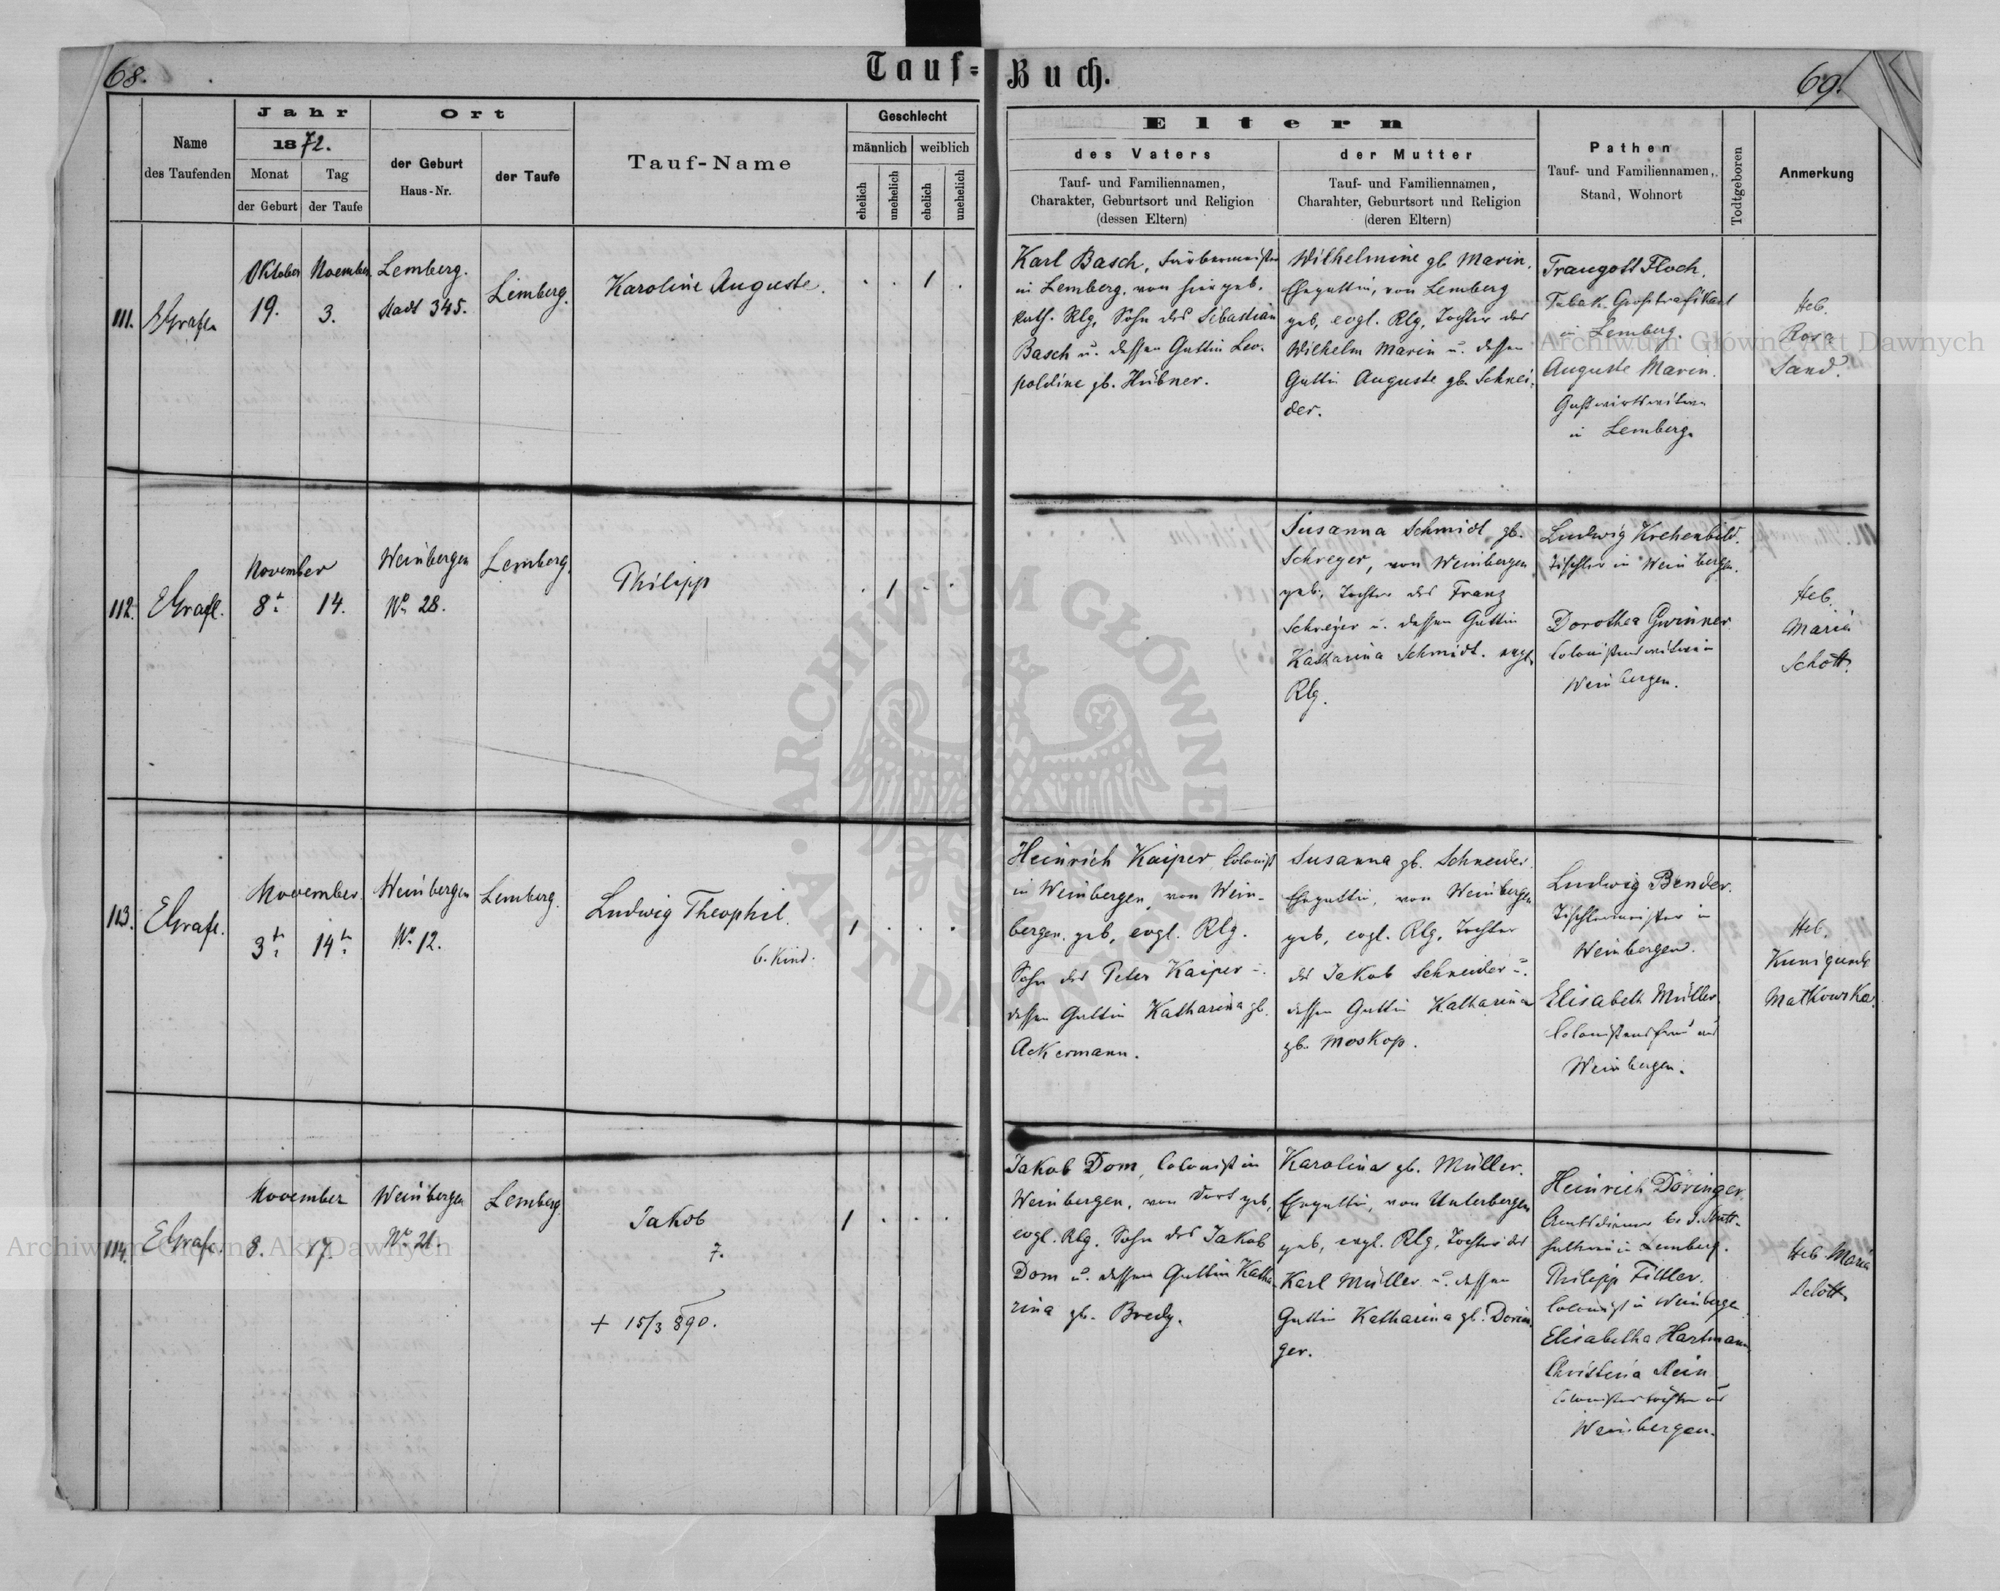 68.
Tauf-
Buch.
69.
Name
des Taufenden
Jahr
1872.
Monat
Tag
der Geburt
der Taufe
Ort
der Geburt
Haus-Nr.
der Taufe
Tauf-Name
Geschlecht
männlich
weiblich
ehelich
unehelich
ehelich
unehelich
Eltern
des Vaters
Tauf- und Familiennamen,
Charakter, Geburtsort und Religion
(dessen Eltern)
der Mutter
Tauf- und Familiennamen,
Charakter, Geburtsort und Religion
(deren Eltern)
Pathen
Tauf- und Familiennamen,
Stand, Wohnort
Todtgeboren
Anmerkung
111.
EGrafl.
Oktober
19.
November
3.
Lemberg.
Stadt 345.
Lemberg.
Karoline Auguste.
1
Karl Basch, Färbermeister
in Lemberg, von hier geb.
kath. Rlg, Sohn des Sebastian
Basch u. dessen Gattin Leo-
poldine gb. Hübner.
Wilhelmine gb. Marin,
Ehegattin, von Lemberg
geb, evgl. Rlg, Tochter des
Wilhelm Marin u. dessen
Gattin Auguste gb. Schnei-
der.
Traugott Floch,
Tabak-Großtrafikant
in Lemberg.
Auguste Marin.
Gastwirtswitwe
in Lemberg.
Heb.
Rosa
Sand.
112.
EGrafl.
November
8t.
14.
Weinbergen
No. 28.
Lemberg.
Philipp
1
Susanna Schmidt gb.
Schreyer, von Weinbergen
geb, Tochter des Franz
Schreyer u. dessen Gattin
Katharina Schmidt. evgl.
Rlg.
Ludwig Krehenbild.
Tischler in Weinbergen.
Dorothea Gwinner
Colonistenwitwe in
Weinbergen.
Heb.
Maria
Schott.
113.
EGrafl.
November
3tn.
14tn.
Weinbergen
No. 12.
Lemberg.
Ludwig Theophil.
6. Kind.
1
Heinrich Kaiper, Colonist
in Weinbergen, von Wein-
bergen geb, evgl. Rlg.
Sohn des Peter Kaiper u.
dessen Gattin Katharina gb.
Ackermann.
Susanna gb. Schneider
Ehegattin, von Weinbergen
geb, evgl. Rlg, Tochter
des Jakob Schneider u.
dessen Gattin Katharina
gb. Moskop.
Ludwig Bender.
Tischlermeister in
Weinbergen.
Elisabeth Müller
Colonistensfrau aus
Weinbergen.
Heb.
Kunigunde
Matkowska.
114.
EGrafl.
November
8.
17.
Weinbergen
No. 21.
Lemberg
Jakob
7.
+ 15/3 890.
1
Jakob Dom, Colonist in
Weinbergen, von dort geb,
evgl. Rlg. Sohn des Jakob
Dom u. dessen Gattin Katha-
rina gb. Bredy.
Karolina gb. Müller.
Ehegattin, von Unterbergen
geb, evgl. Rlg, Tochter des
Karl Müller u. dessen
Gattin Katharina gb. Dorin-
ger.
Heinrich Döringer.
Amtsdiener
in Lemberg.
Philipp Fittler.
Colonist in Weinbergen
Elisabetha Hartmann
Christina Rein
Colonistentöchter aus
Weinbergen.
Heb. Maria
Schott.
Archiwum Główne Akt Dawnych
Archiwum Główne Akt Dawnych
ARCHIWUM GŁÓWNE AKT DAWNYCH